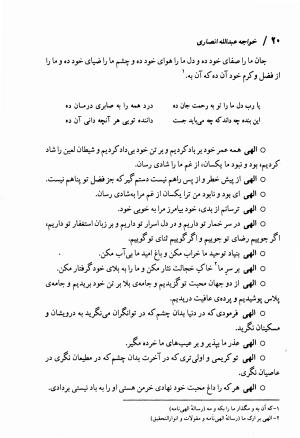 ۲۰ / خواجه عبدالله انصاری
جان ما را صفای خود ده و دل ما را هوای خود ده و چشم ما را ضیای خود ده و ما را
از فضل و کرم خود آن ده که آن به.۱
یا رب دل ما را تو به رحمت جان ده
درد همه را به صابری درمان ده
این بنده چه داند که چه می‌باید جست
داننده تویی هر آنچه دانی آن ده
○ الهی همه عمر خود بر باد کردیم و بر تن خود بی‌داد کردیم و شیطان لعین را شاد
کردیم، بود و نبود ما یکسان، از غم ما را شادی رسان.
○ الهی از پیش خطر و از پس راهم نیست دستم گیر که جز فضل تو پناهم نیست.
○ الهی ای بود و نابود من ترا یکسان از غم مرا به‌شادی رسان.
○ الهی ترسانم از بدی، خود بیامرز مرا به خوبی خود.
○ الهی در سر خمار تو داریم و در دل اسرار تو داریم و بر زبان استغفار تو داریم،
اگر جوییم رضای تو جوییم و اگر گوییم ثنای تو گوییم.
○ الهی بنیاد توحید ما خراب مکن و باغ امید ما بی‌آب مکن.
○ الهی بر سرِ ما۲ خاک خجالت نثار مکن و ما را به بلای خود گرفتار مکن.
○ الهی از دو جهان محبت تو گزیدیم و جامه‌ی بلا بر تن خود بریدیم و جامه‌ی
پلاس پوشیدیم و پرده‌ی عافیت دریدیم.
○ الهی فرمودی که در دنیا بدان چشم که در توانگران می‌نگرید به درویشان و
مسکینان نگرید.
○ الهی عذر ما بپذیر و بر عیب‌های ما خرده مگیر.
○ الهی تو کریمی و اولی‌تری که در آخرت بدان چشم که در مطیعان نگری در
عاصیان نگری.
○ الهی هرکه را داغ محبت خود نهادی خرمن هستی او را به باد نیستی بردادی.
۱- که آن به و مگذار ما را بکه و مه (رسالهٔ الهی‌نامه)
۲- الهی بر تارک ما (رسالهٔ الهی‌نامه و مقولات و انوارالتحقیق)